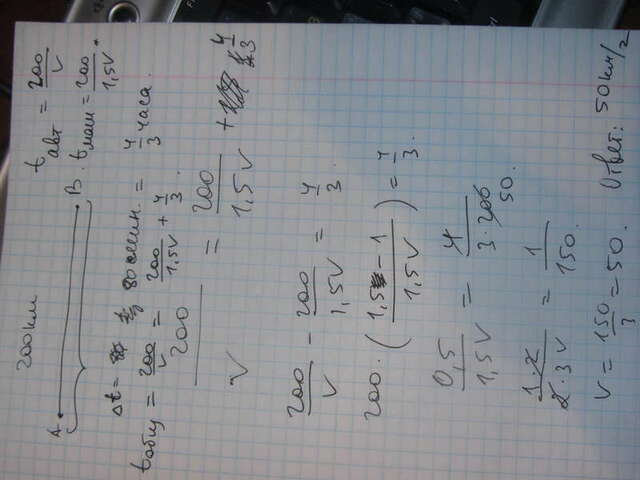 200км
t авт = 200/v
A B
t маш = 200/1,5v
Δt = 80 мин. = 4/3 часа.
t общ = 200/v = 200/1,5v + 4/3.
200/v = 200/1,5v + 4/3
200/v - 200/1,5v = 4/3.
200 · (1,5 - 1 / 1,5v) = 4/3.
0,5/1,5v = 4/3·200
50.
1·2/2·3v = 1/150.
v = 150/3 = 50. Ответ: 50км/г